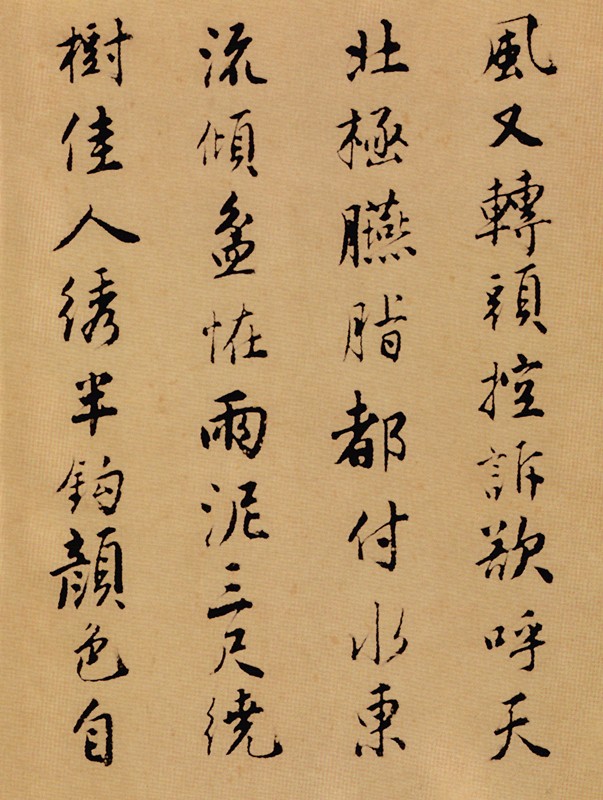 風又轉頭控訴欲呼天
北極臙脂都付水東
流傾盆恠雨泥三尺繞
樹佳人綉半鈎顏色自